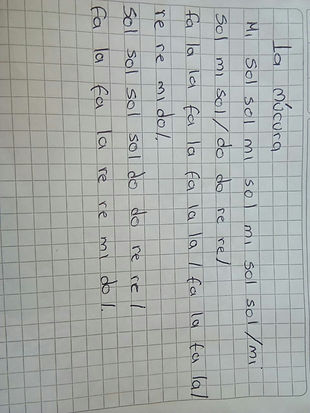 La múcura
Mi Sol Sol mi sol mi sol sol/mi
Sol mi sol/do do re re/
fa la la fa la fa la la/fa la fa la/
re re mi do/.
Sol sol sol sol do do re re/
fa la fa la re re mi do/.